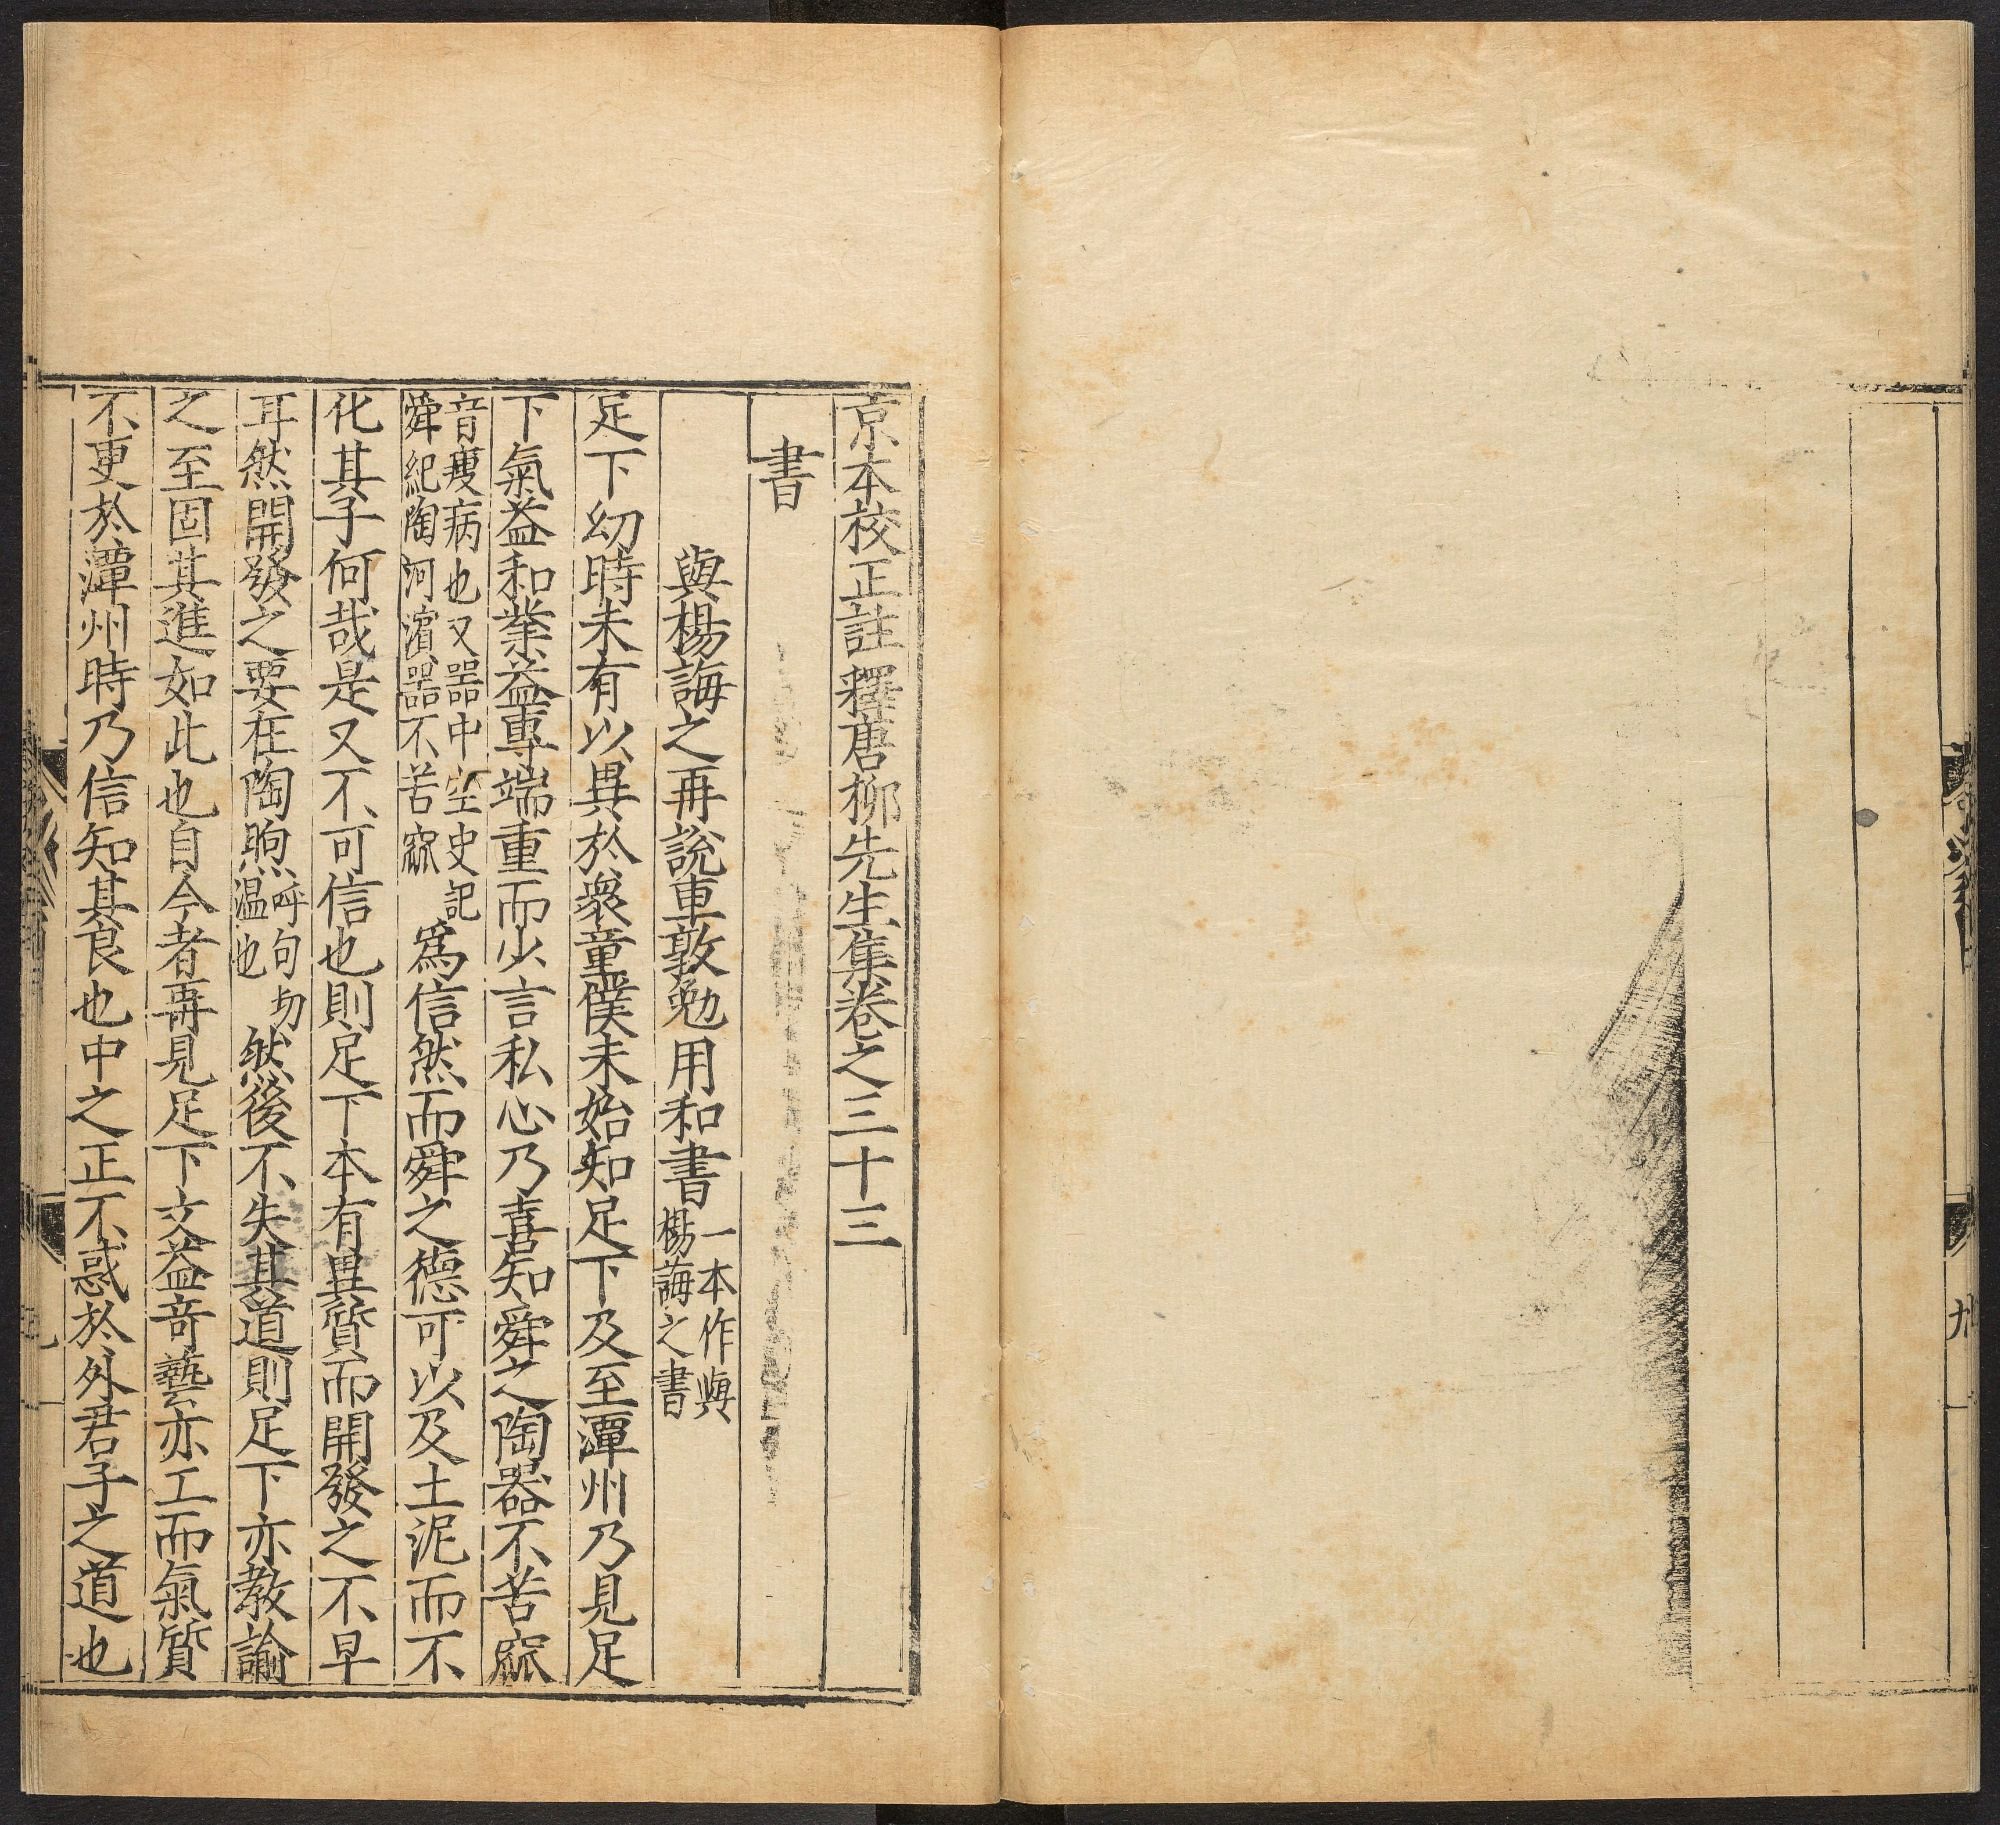 京本校正註釋唐柳先生集卷之三十三
書
與楊誨之再說車敦勉用和書一本作與楊誨之書
足下幼時未有以異於衆童僕未始知足下及至潭州乃見足
下氣益和業益專端重而少言私心乃喜知舜之陶器不苦窳
音瘦病也又器中空史記舜紀陶河濵器不苦窳爲信然而舜之德可以及土泥而不
化其子何哉是又不可信也則足下本有異質而開發之不早
耳然開發之要在陶煦呼句切温也然後不失其道則足下亦教諭
之至固其進如此也自今者再見足下文益竒藝亦工而氣質
不更於潭州時乃信知其良也中之正不惑於外君子之道也
九